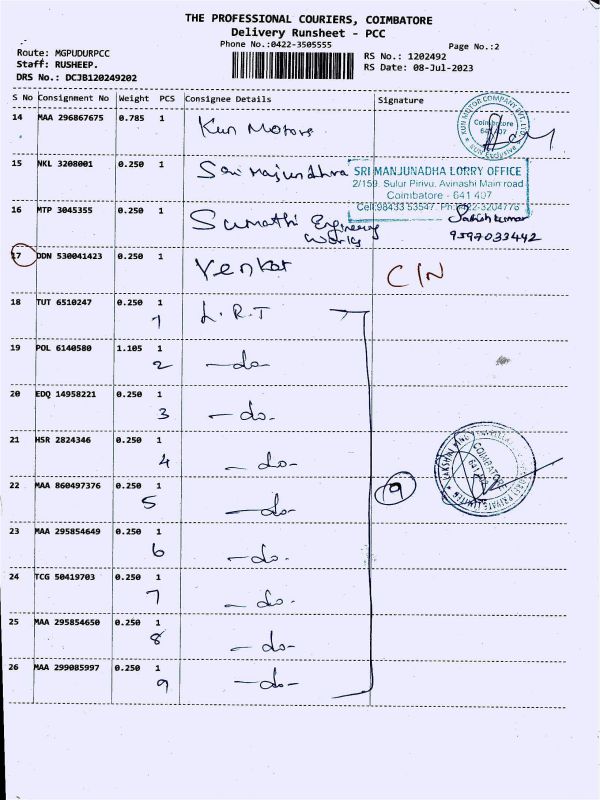 THE PROFESSIONAL COURIERS, COIMBATORE
Delivery Runsheet - PCC
Phone No.:0422-3505555
Page No.:2
Route: MGPUDURPCC
Staff: RUSHEEP.
DRS No.: DCJB120249202
RS No.: 1202492
RS Date: 08-Jul-2023
S No Consignment No Weight PCS Consignee Details Signature
14 MAA 296867675 0.785 1 Kun Motors
KUN MOTOR COMPANY PVT. LTD.
Coimbatore
641 407
15 NKL 3208001 0.250 1 Sri Manjundhra
SRI MANJUNADHA LORRY OFFICE
2/159, Sulur Pirivu, Avinashi Main road
Coimbatore - 641 407
Cell:98433 53547, Ph:0422-3204776
16 MTP 3045355 0.250 1 Sumathi Engineering
Works
Sathish kumar
9597033442
17 DDN 530041423 0.250 1 Venkat C/N
18 TUT 6510247 0.250 1 L.R.T
1
19 POL 6140580 1.105 1 -do-
2
20 EDQ 14958221 0.250 1 -do-
3
21 HSR 2824346 0.250 1 -do-
4
22 MAA 860497376 0.250 1 -do-
5
9
23 MAA 295854649 0.250 1 -do-
6
24 TCG 50419703 0.250 1 -do-
7
25 MAA 295854650 0.250 1 -do-
8
26 MAA 299085997 0.250 1 -do-
9
COIMBATORE
PRIVATE LIMITED